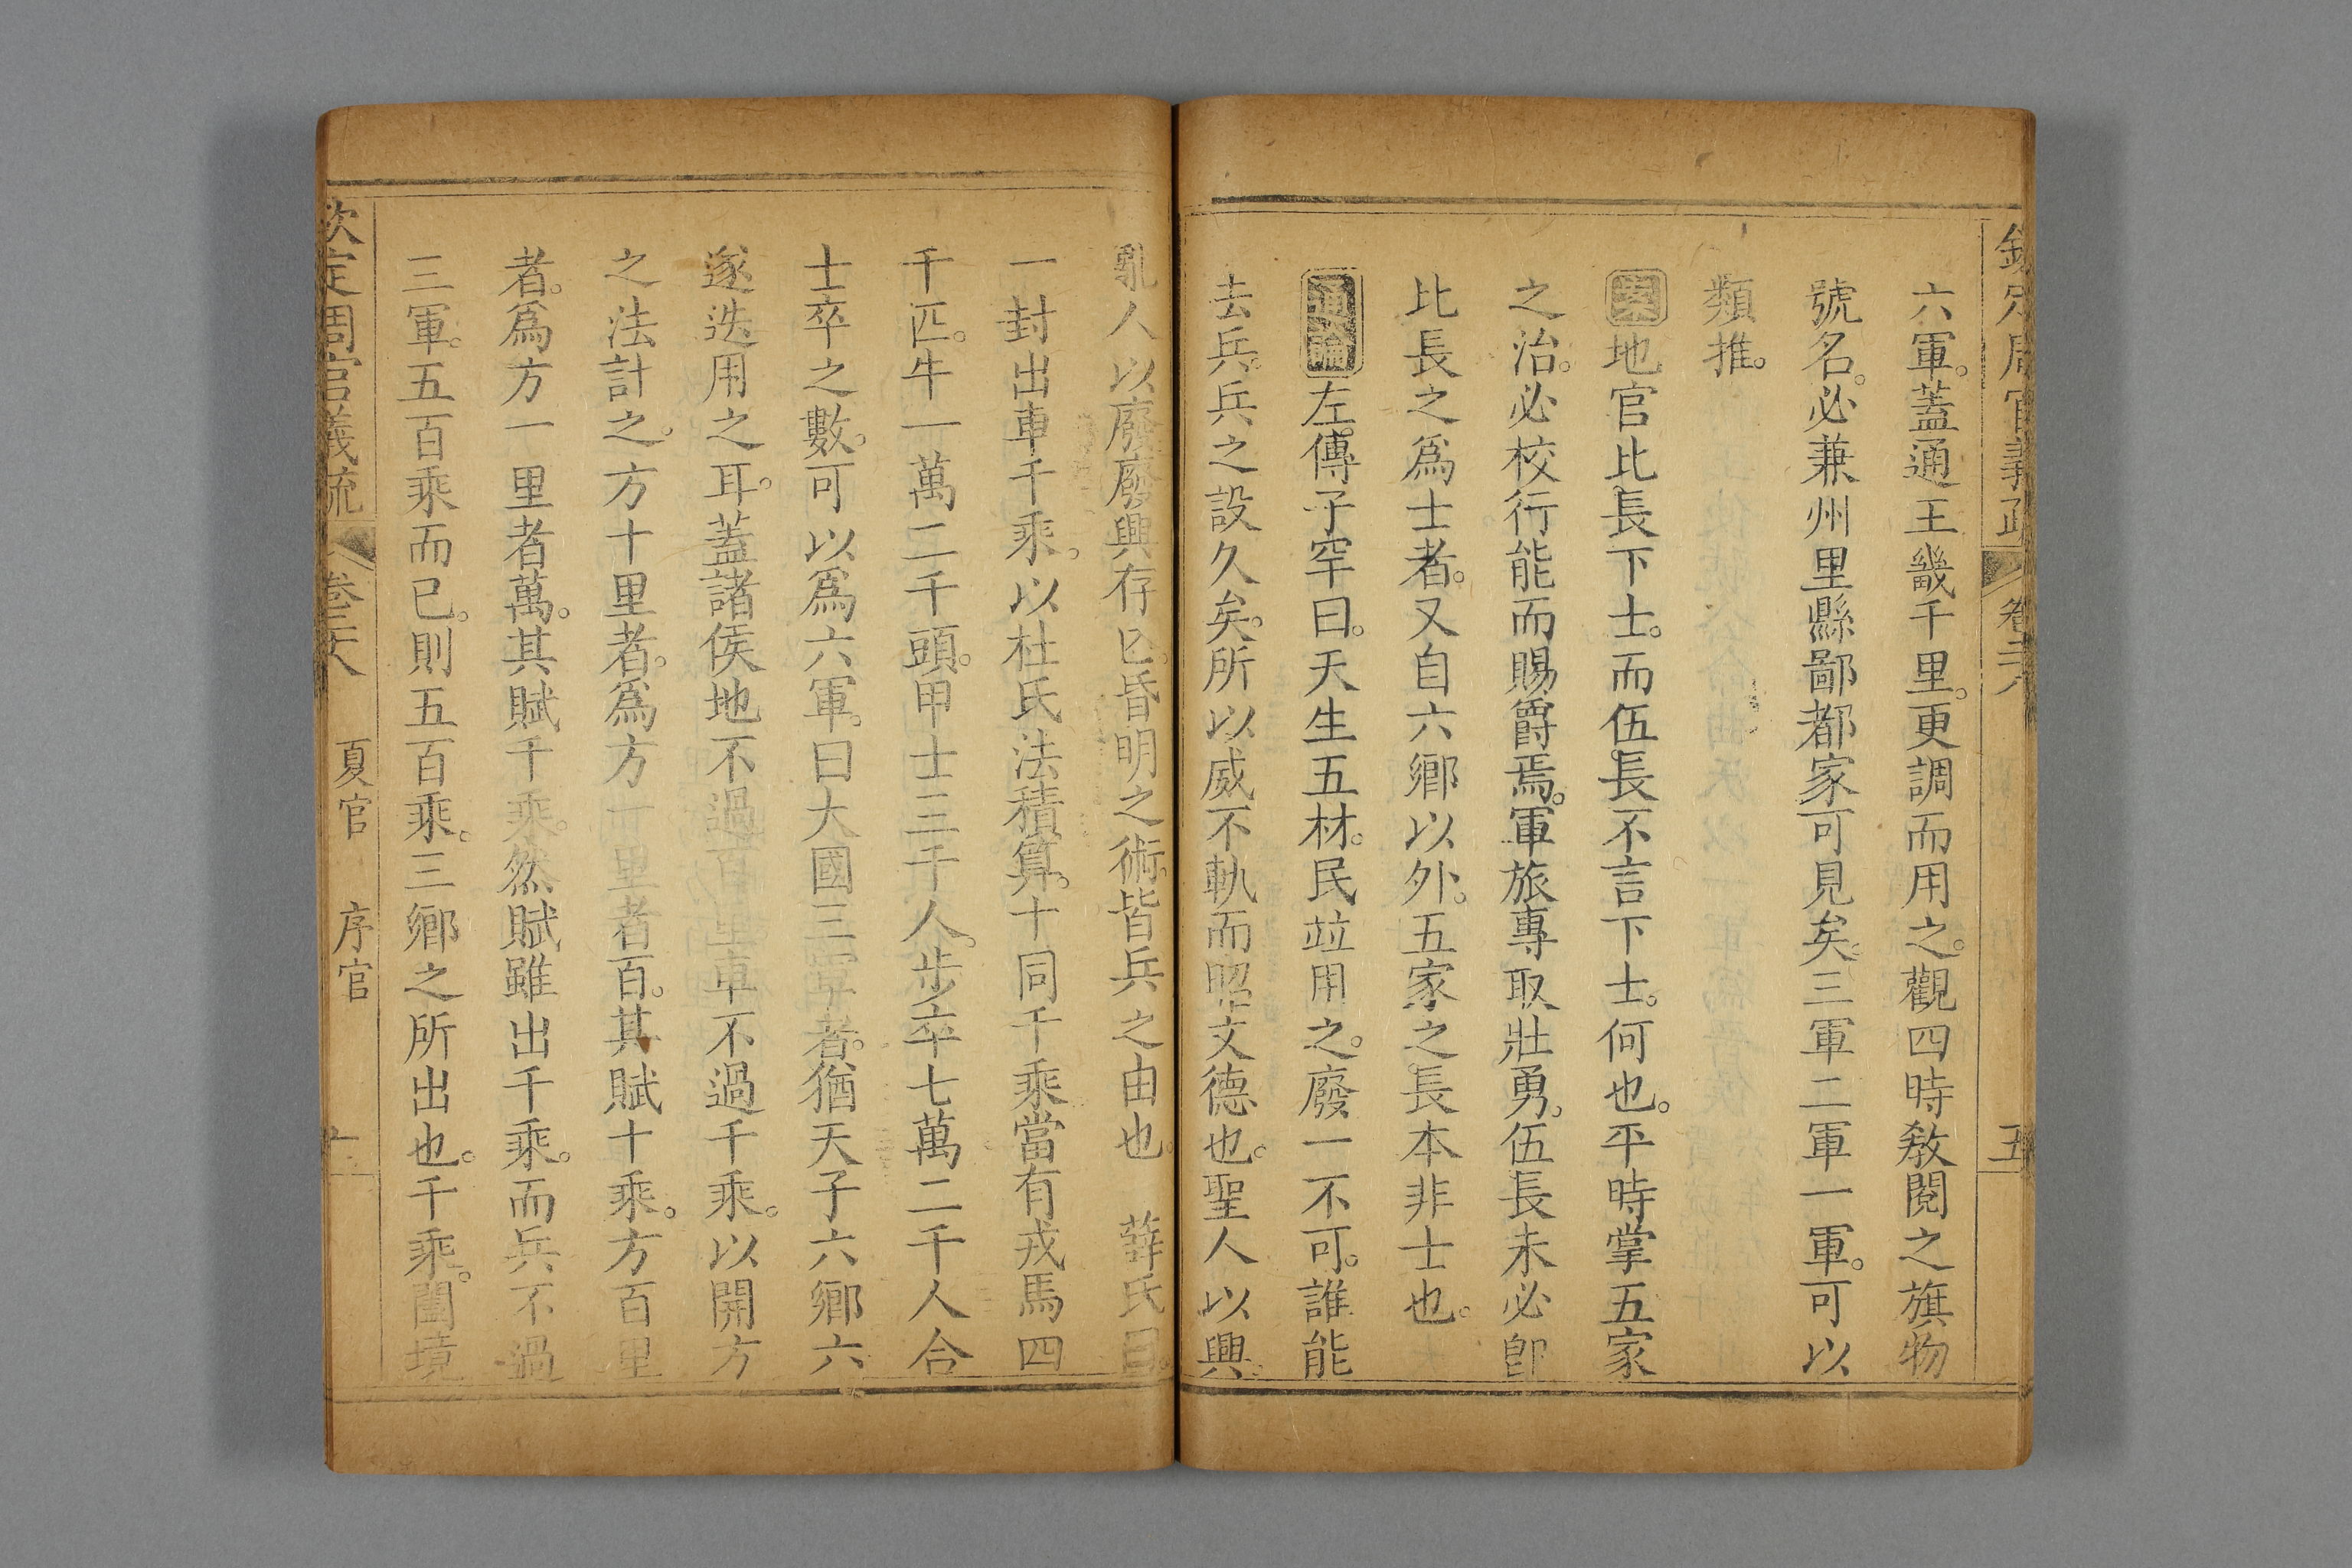 欽定周官義疏 卷二十八 五
六軍。蓋通王畿千里。更調而用之。觀四時敎閱之旗物
號名。必兼州里縣鄙都家可見矣。三軍二軍一軍。可以
類推。
案地官比長下士。而伍長不言下士。何也。平時掌五家
之治。必校行能而賜爵焉。軍旅專取壯勇。伍長未必卽
比長之爲士者。又自六鄉以外。五家之長本非士也。
通論左傳子罕曰。天生五材。民竝用之。廢一不可。誰能
去兵。兵之設久矣。所以威不軌而昭文德也。聖人以興
亂人以廢。廢興存亡。昏明之術。皆兵之由也。 薛氏曰。
一封出車千乘。以杜氏法積算。十同千乘當有戎馬四
千匹。牛一萬二千頭。甲士三千人。步卒七萬二千人合
士卒之數。可以爲六軍。曰大國三軍者。猶天子六鄉六
遂迭用之耳。蓋諸侯地不過百里。車不過千乘。以開方
之法計之。方十里者。爲方一里者百。其賦十乘。方百里
者。爲方一里者萬。其賦千乘。然賦雖出千乘。而兵不過
三軍。五百乘而已。則五百乘。三鄉之所出也。千乘。闔境
欽定周官義疏 卷二十八 夏官 序官